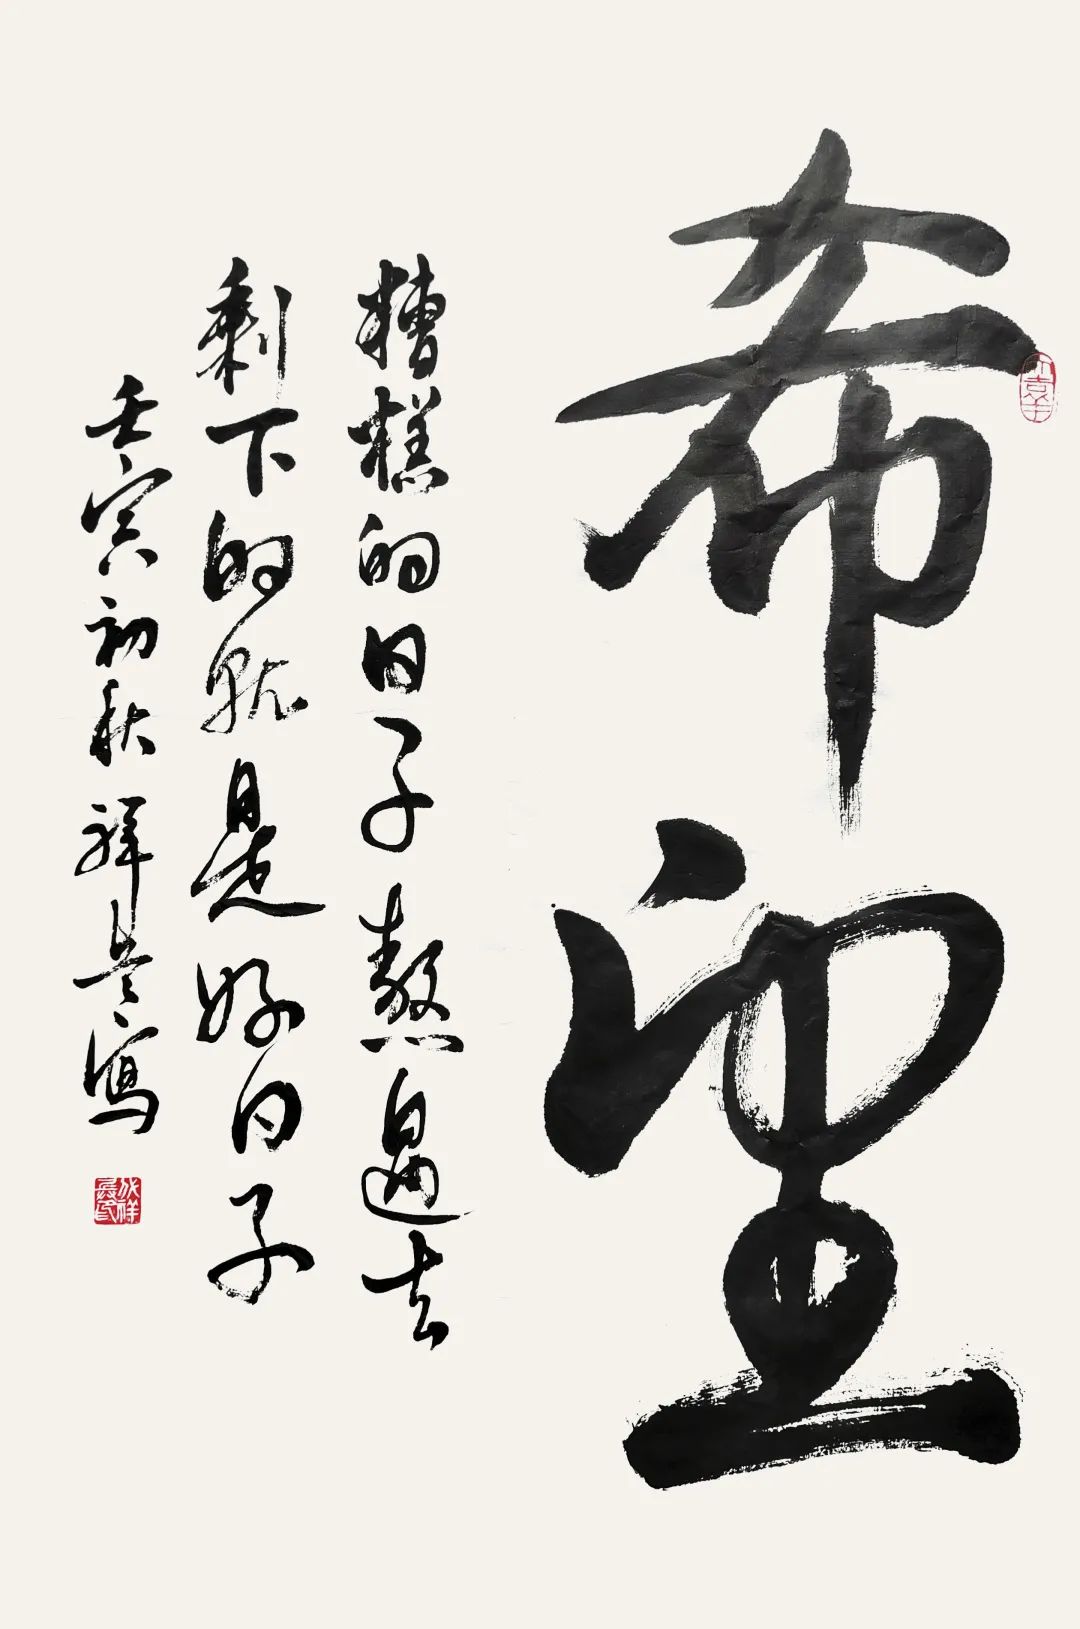 希望
糟糕的日子熬過去
剩下的就是好日子
壬寅初秋祥兵寫